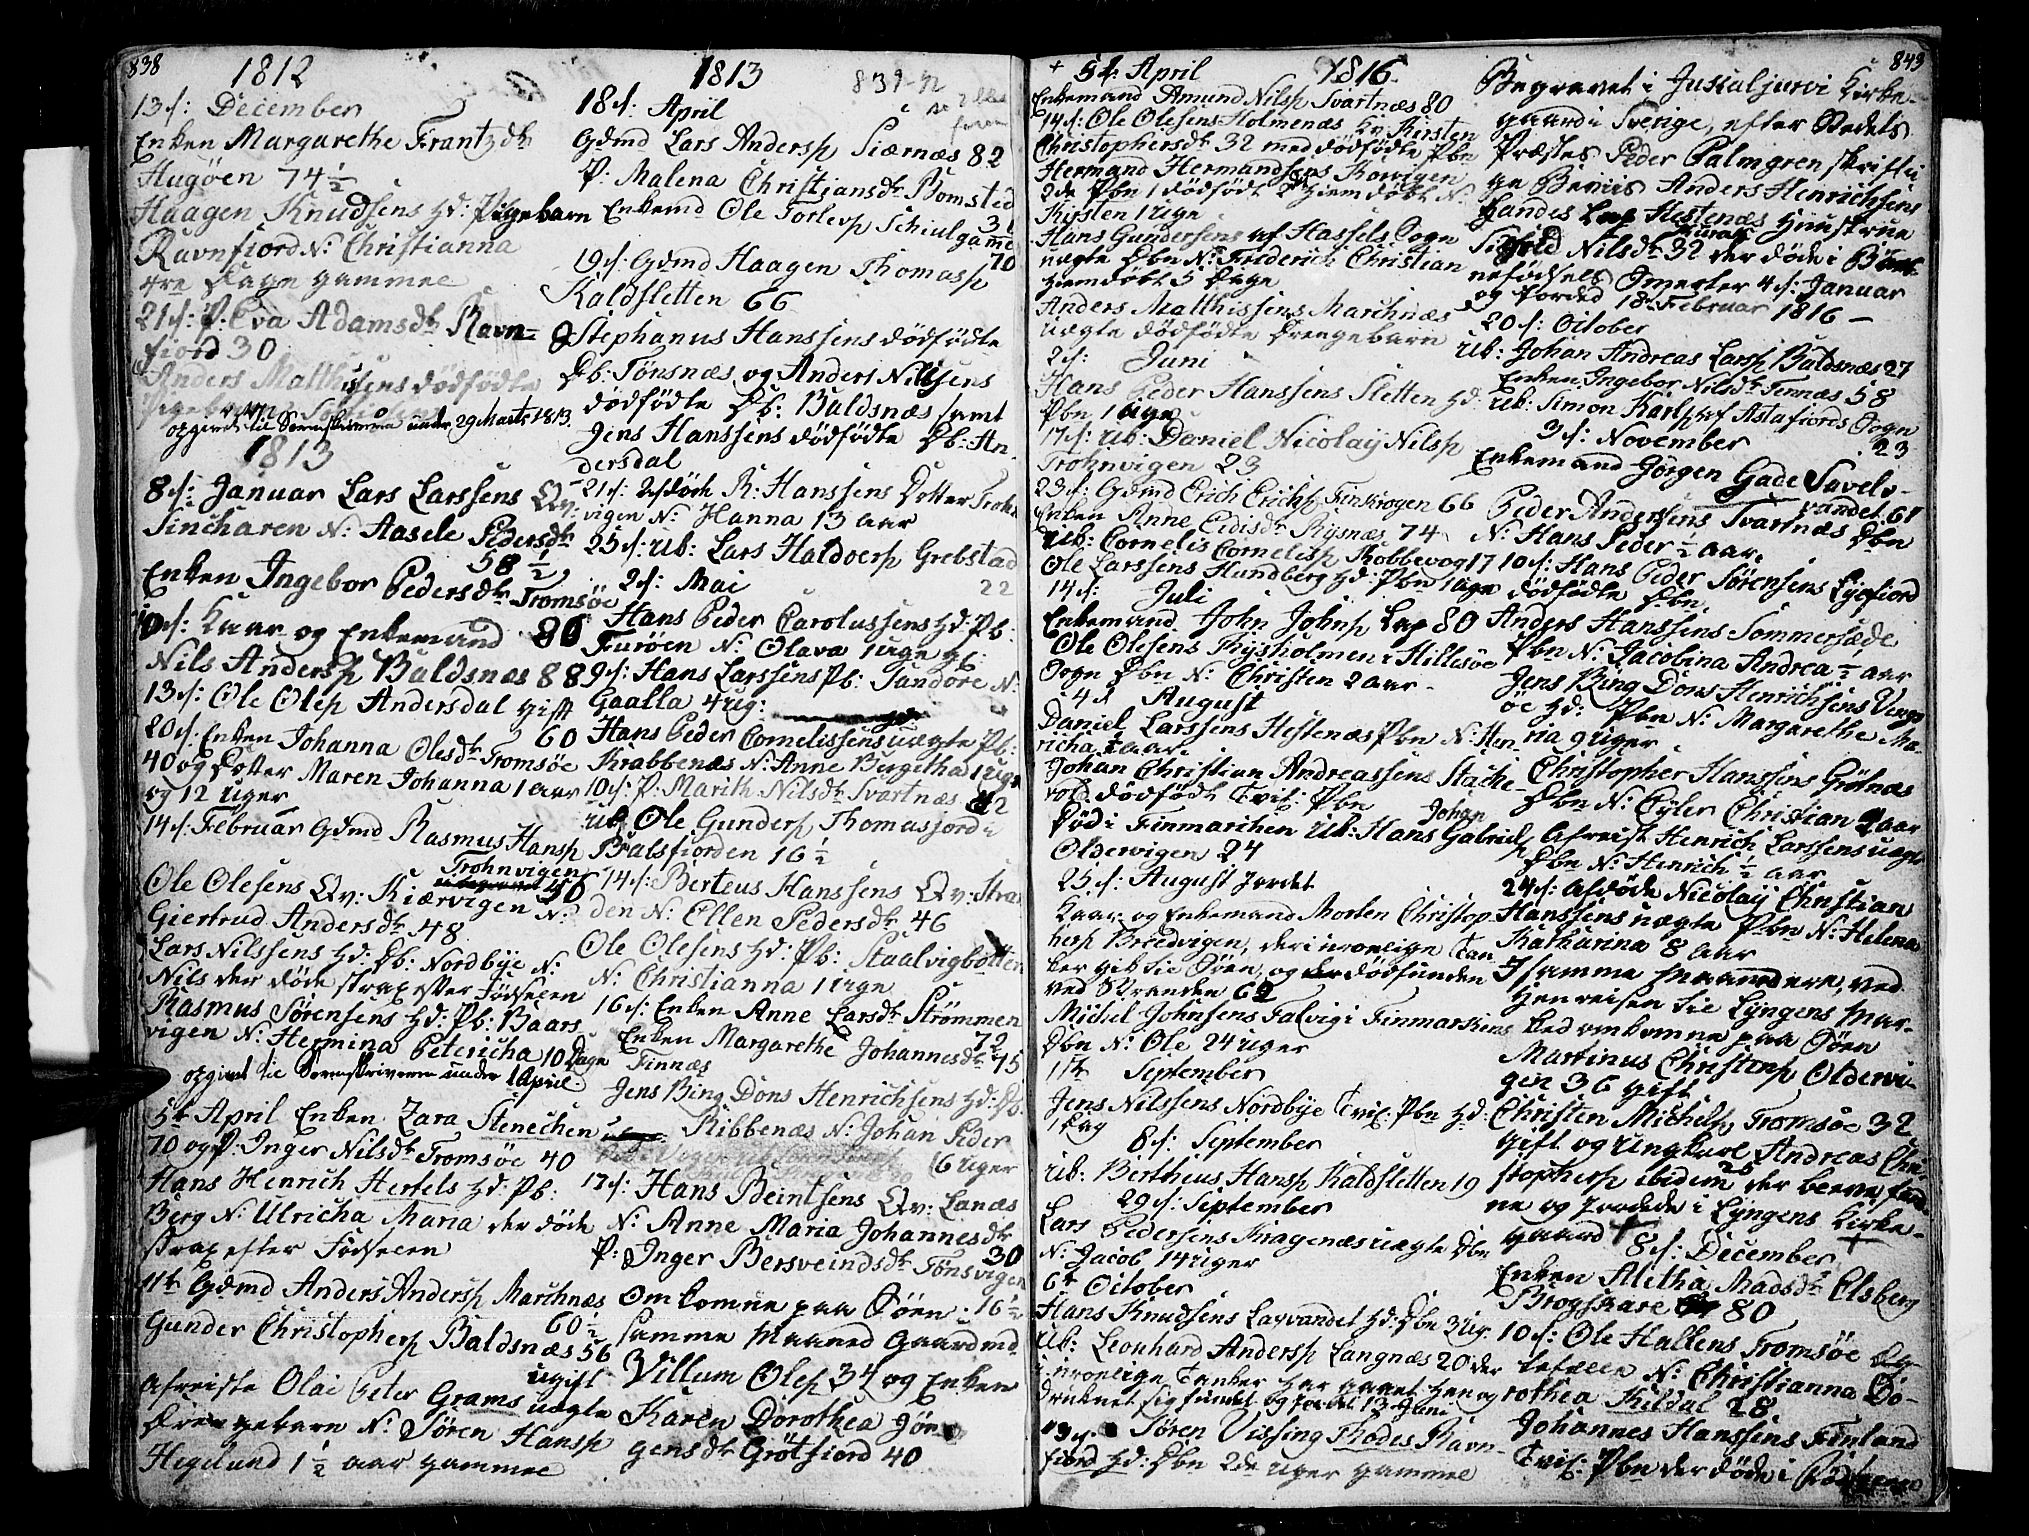 838
1812
13 d: December
Enken Margarethe Frantzdr
Hugøen 74 1/2
Haagen Knudsens hd: Pigebarn
Ravnfiord N: Christianna
4re Dage gammel
21 d: P: Eva Adamsdr Ravn=
fiord 30
Anders Matthisens dødfødte
opgivet til Sorenskriveren under 29 Marts 1813.
1813
8 d: Januar Lars Larssens Qv:
Sincharen N: Aasele Pedersdr
58 1/2
Enken Ingebor Pedersdr Tromsøe
86
10 d: Kaar og Enkemand
Nils Andersp Baldsnæs 88
13 d: Ole Olsp Andersdal gift
60
20 d: Enken Johanna Olesdr Tromsøe
40 og Dotter Maren Johanna 1 aar
og 12 uger
14 d: Februar Gdmd Rasmus Hansp
Trohnvigen
56
Ole Olesens Qv: Kiærvigen N:
Giertrud Andersdr 48
Lars Nilssens hd: Db: Nordbye N:
Nils der døde strax efter Fødselen
Rasmus Sørensens hd: Pb: Baars
vigen N: Hermina Petericha 10 Dage
opgivet til Sorenskriveren under 1 April
5te April Enken Zara Stenechen
70 og P: Inger Nilsdr Tromsøe 40
Hans Henrich Hertels hd: Pb:
Berg N: Ulricha Maria der døde
strax efter Fødselen
11te Gdmd Anders Andersp Marchnæs
60 1/2
Gunder Christophersp Baldsnæs 56
ugift
Afreiste Olai Peter Grams uægte
Drengebarn N: Søren Hansp
Hegelund 1 1/2 aar gammel
1813
839-42
18 d: April
Gdmd Lars Andersp Siærnæs 82
P: Malena Christiansdr Bomsted
Enkemd Ole Torlevsp Schiulgame
70
19 d: Gdmd Haagen Thomasp
Kaldsletten 66
Stephanus Hanssens dødfødte
Db: Tønsnæs og Anders Nilssens
dødfødte Db: Baldsnæs samt
Jens Hanssens dødfødte Db: An-
dersdal
21 d: Afdøde R: Hanssens Dotter Trohn
vigen N: Hanna 13 aar
25 d: Ub: Lars Haldorsp Grebstad
22
2 d: Mai
Hans Peder Carolussens hd: Pb:
Furøen N: Olava 1 uge gl:
9 d: Hans Larssens Pb: Sandøre N:
Gaalla 4 ug:
Hans Peder Cornelissens uægte Pb:
Krabbenæs N: Anne Bergetha 1 uge
10 d: P: Marith Nilsdr Svartnæs 42
Ub: Ole Gundersp Thomasjord i
Balsfiorden 16 1/2
14 d: Berteus Hanssens Qv: Stran
den N: Ellen Pedersdr 46
Ole Olesens hd: Pb: Staalvigbotten
N: Christianna 1 uge
16 d: Enken Anne Larsdr Strømmen
72
Enken Margarethe Johannesdr
Finnæs 75
Jens Bing Dons Henrichsens hd: Db:
Ribbenæs N: Johan Peder
6 uger
17 d: Hans Beintsens Qv: Lanæs
N: Anne Maria Johannesdr
30
P: Inger Bersveindsdr Tønsvigen
Omkomne paa Søen: 16 1/2
samme Maaned Gaardmd
Villum Olsp 34 og Enken
Karen Dorothea Jør-
gensdr Grøtfiord 40
1816
5te April
Enkemand Amund Nilsp Svartnæs 80
14 d: Ole Olesens Holmenæs Kv: Kirsten
Christophersdr 32 med dødfødte Pbn
Hermand Hermandsens Kovigen
2de Pbn 1 dødfødt 2 hjemdøbt N:
Kirsten 1 uge
Hans Gundersens af Hassels Sogn
uægte Dbn N: Friderich Christian
hjemdøbt 5 Dage
Anders Matthissens Marchnæs
uægte dødfødte Drengebarn
2 d: Juni
Hans Peder Hanssens Sletten hd:
Pbn 1 uge
17 d: Ub: Daniel Nicolaÿ Nilsp
Trohnvigen 23
23 d: Gdmd Erich Erichsp Finkrogen 66
Enken Anne Eidisdr Rÿsnæs 74
Ub: Cornelis Cornelisp Kobbevog 17
Ole Larssens Hundberg hd: Pbn 1 uge
14 d: Juli
Enkemand John Johnsp Lap 80
Ole Olesens Frÿsholmen i Hillesøe
Sogn Dbn N: Christen 2 aar
4 d August
Daniel Larssens Hestenæs Pbn N: Hen-
richa 1 aar
Johan Christian Andreassens Stache-
vold dødfødt Tvil: Pbn
Johan
Død i Finmarchen Ub: Hans Gabriels
Oldervigen 24
25 d: August jordet
Kaar og Enkemand Morten Christop
hersp Breedvigen, der i urolige Tan
ker gik til Søen, og dødfunden
ved Stranden 62
Michel Johnsens Talvig i Finmarkens
Dbn N: Ole 24 uger
1ste September
Jens Nilssens Nordbÿe Tvil: Pbn hd:
1 Dag
8 d: September
Ub: Bertheus Hansp Kaldsletten 19
29 d: September
Lars Pedersens Kragenæs uægte Dbn
N: Jacob 14 uger
6te October
Hans Knudsens Laxvandet hd: Dbn 3 ug.
Ub: Leonhard Andersp Langnæs 20 der
i urolige Tanker har gaaet hen og
druknet sig fundet og jordet 13 Juni
13 d: Søren Vissing Rhodes Ravn-
fiord hd: Dbn 2de uger gammel
843
Begravet i Juckasjervi Kirke-
gaard i Sverige, efter Stedets
Præstes Peder Palmgren skriftli
ge Beviis Anders Henrichsens
Landes Lap Hestenæs Hustrue
Sigrid Nilsdr 32 der døde i Bar-
nefødsels Smerter 4 d: Januar
og jorded 18de Februar 1816 —
20 d: October
Ub: Johan Andreas Larsp Baldsnæs 27
Enken Ingebor Nilsdr Tennæs 58
Ub: Simon Karlsp af Astafiords Sogn
23
3 d: November
Enkemand Jørgen Gade Savels-
vandet 61
Peder Andersens Svartnæs Dbn
N: Hans Peder 1/2 aar.
10 d: Hans Peder Sørensens Lyfiord
dødfødte Dbn.
Anders Hanssens Sommersæde
Pbn N: Jacobina Andrea 1/2 aar
Jens Bing Dons Henrichsens Vengs
øe hd: Pbn N: Margarethe Ma-
ria 9 uger
Christopher Hanssens Grøtnæs
Dbn N: Eyler Christian 2 aar
Afreist Henrich Larssens uægte
Dbn N: Henrich 1/2 aar
24 d: Afdøde Nicolaÿ Christian
Hanssens uægte Pbn N: Helena
Katharina 8 aar
I samme Maaned ere, ved
Hjemreisen til Lyngens Mar-
ked omkomne paa Søen
Martinus Christensp Oldervi-
gen 36 gift
Christen Michelsp Tromsøe 32
gift og Ungkarl Andreas Chri-
stophersp ibidem 26 der bleve fund-
ne og jordede i Lyngens Kirke-
gaard
8 d: December
Enken Aletha Madsdr Elsberg
Brogskare 80
10 d: Ole Hallens Tromsøe Og-
tefælle N: Christianna Do-
rothea Kildal 28
Johannes Hanssens Finland
Tvil: Pbn der døde i Fødselen